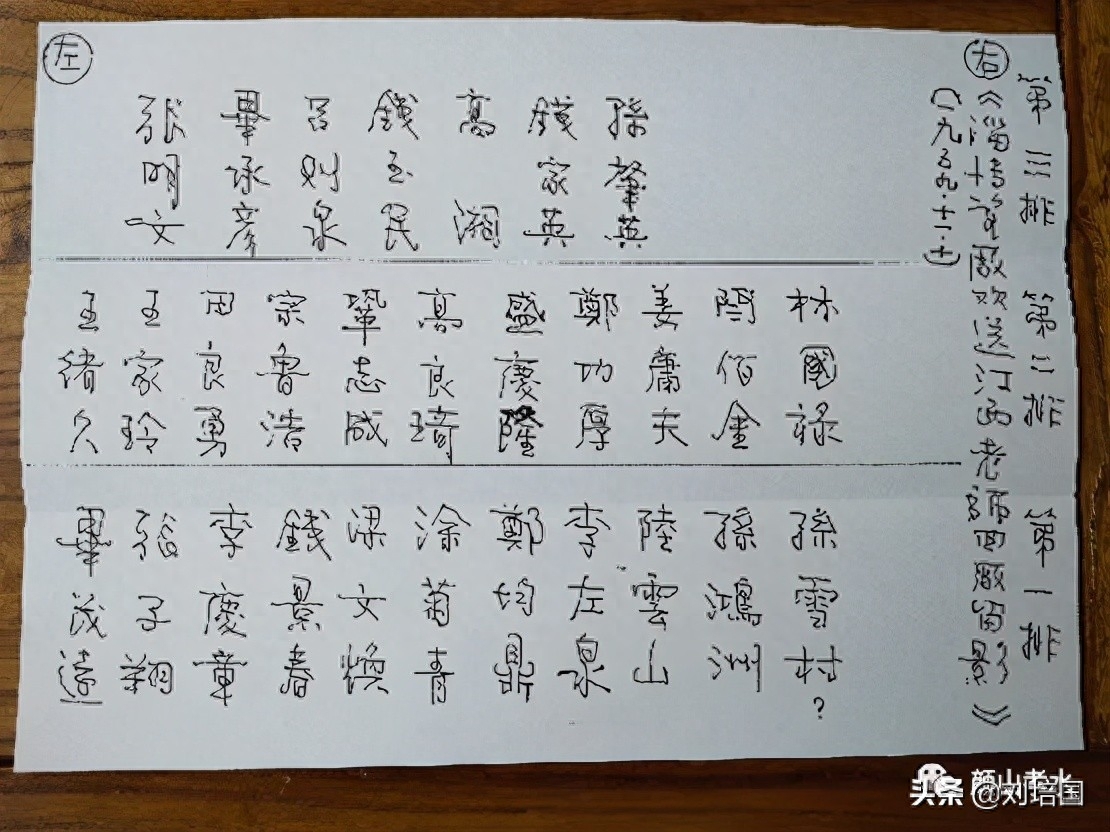 第三排 第二排 第一排
右
《淄博瓷厰欢送江西老師回厰留影》
(一九五九·十一·十)
孫肇英
錢家英
高湘
錢玉民
呂則泉
畢承彦
張明文
左
林國祿
閆佰金
姜庸夫
鄭功厚
盛慶隆
高良琦
鞏志威
宗魯浩
田良勇
王家玲
王緒久
孫雪村?
孫鴻洲
陸雲山
李左泉
鄭均鼎
涂菊青
梁文焕
錢景春
李慶章
張子翔
畢茂遠
颜山老水
头条 @刘培国